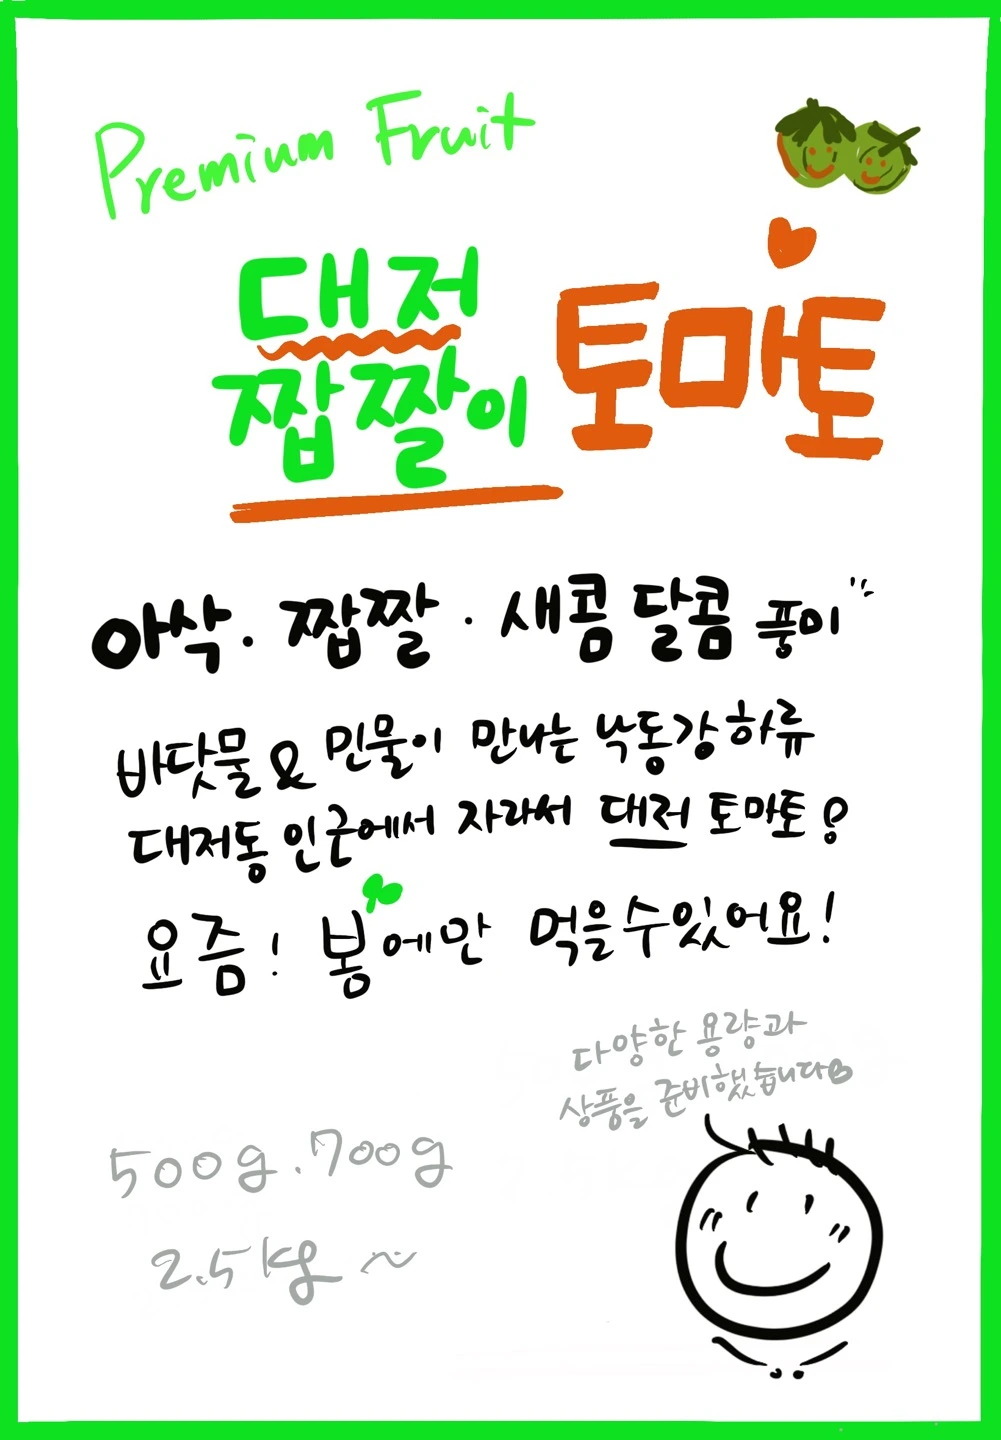 Premium Fruit
대저
짭짤이 토마토
아삭 · 짭짤 · 새콤달콤 풍미
바닷물 & 민물이 만나는 낙동강 하류
대저동 인근에서 자라서 대저 토마토!
요즘! 봄에만 먹을 수 있어요!
다양한 용량과
상품을 준비했습니다
500g. 700g
2.5kg ~